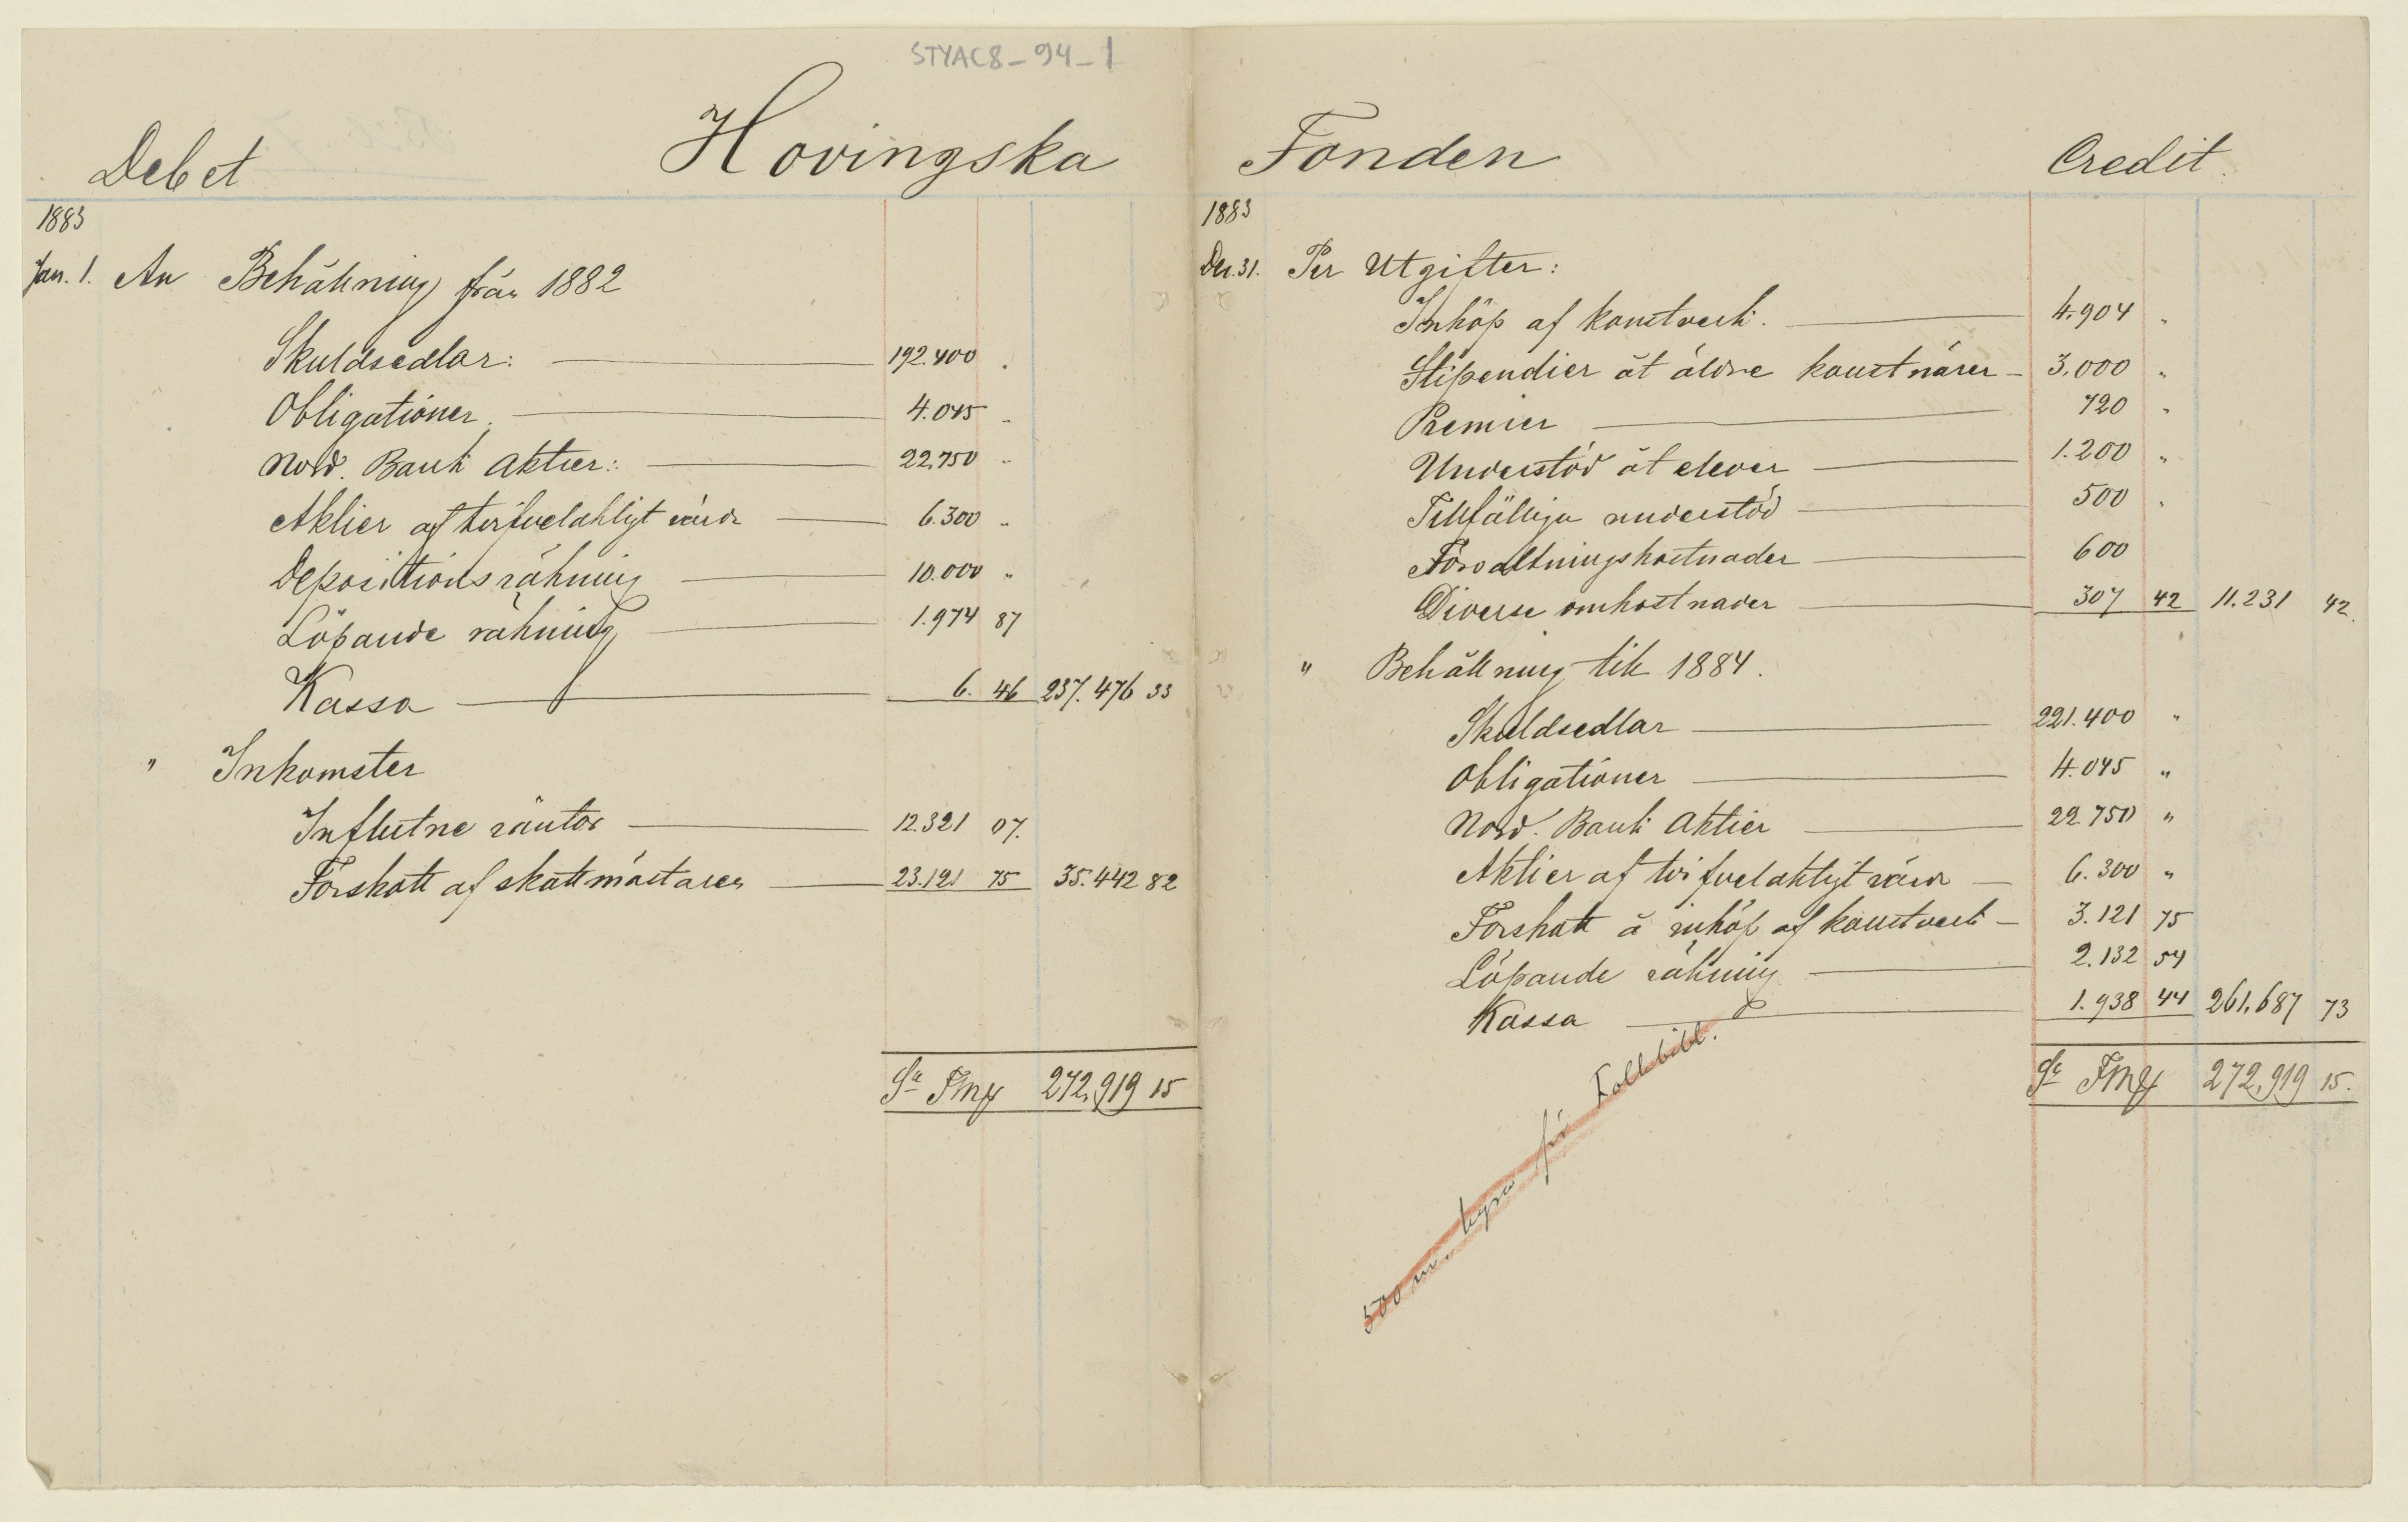 STYAC8_94_1
Debet Hovingska Fonden Credit.
1883
Jan. 1. An Behållning från 1882
Skuldsedlar: 192.400 "
Obligationer. 4.045 "
Nord. Bank Aktier: 22.750 "
Aktier af tvifvelaktigt värde 6.300 "
Depositions räkning 10.000 "
Löpande räkning 1.974 87
Kassa 6. 46 237.476 33
" Inkomster
Influtne räntor 12.321 07.
Förskott af skattmästaren 23.121 75 35.442 82
Sa Fmk 272.919 15
1883
Dec. 31. Per Utgifter:
Inköp af konstverk. 4.904 "
Stipendier åt äldre konstnärer 3.000 "
Premier 720 "
Understöd åt elever 1.200 "
Tillfälliga understöd 500 "
Förvaltningskostnader 600
Diverse omkostnader 307 42 11.231 42.
" Behållning till 1884.
Skuldsedlar 221.400 "
Obligationer 4.045 "
Nord. Bank Aktier 22.750 "
Aktier af tvifvelaktigt värde 6.300 "
Förskott å inköp af konstverk 3.121 75
Löpande räkning 2.132 54
Kassa 1.938 44 261.687 73
Sa Fmk 272.919 15.
500 m. hyra för Folkbibl.